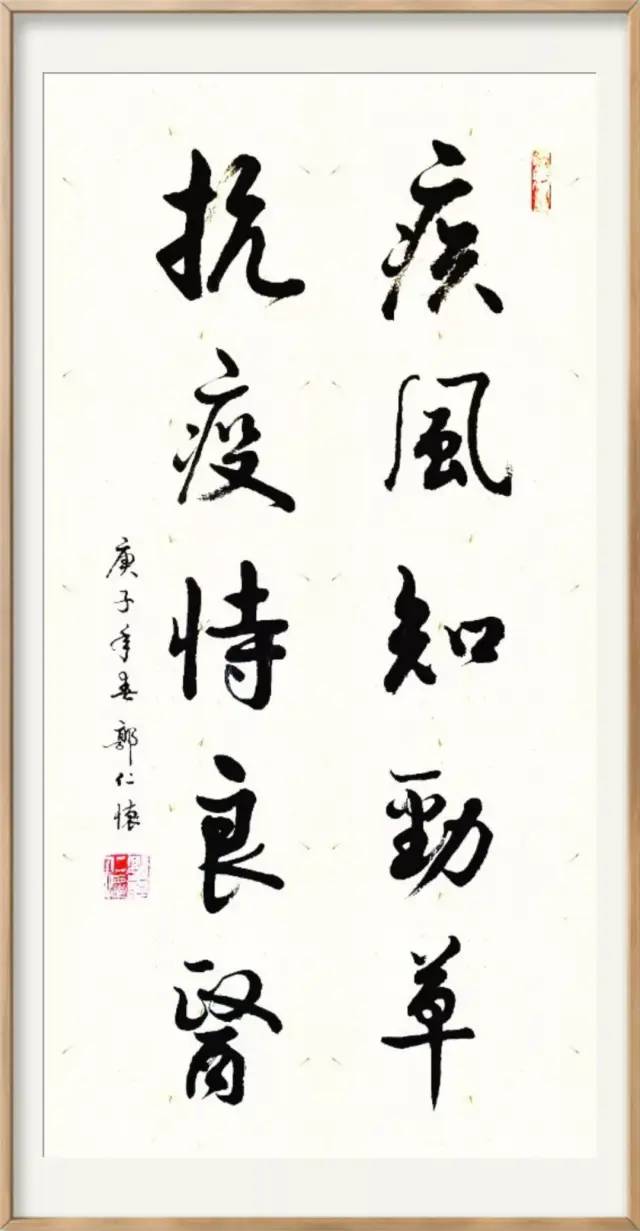 疾風知勁草
抗疫恃良醫
庚子年春郭仁懷